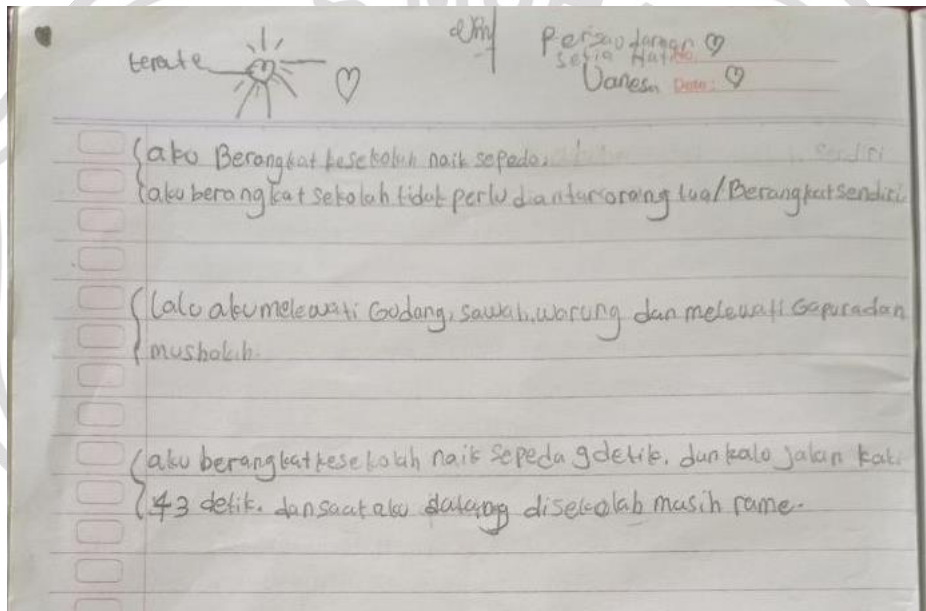 terate
Persaudaraan
Setia Hati
No.
Vanesa Date:
aku Berangkat kesekolah naik sepeda.
sendiri
aku berangkat sekolah tidak perlu diantar orang tua/Berangkat sendiri.
lalu aku melewati Godang, sawah, warung dan melewati Gapura dan
musholih.
aku berangkat kesekolah naik sepeda 9 detik. dan kalo jalan kaki
43 detik. dan saat aku datang disekolah masih rame.